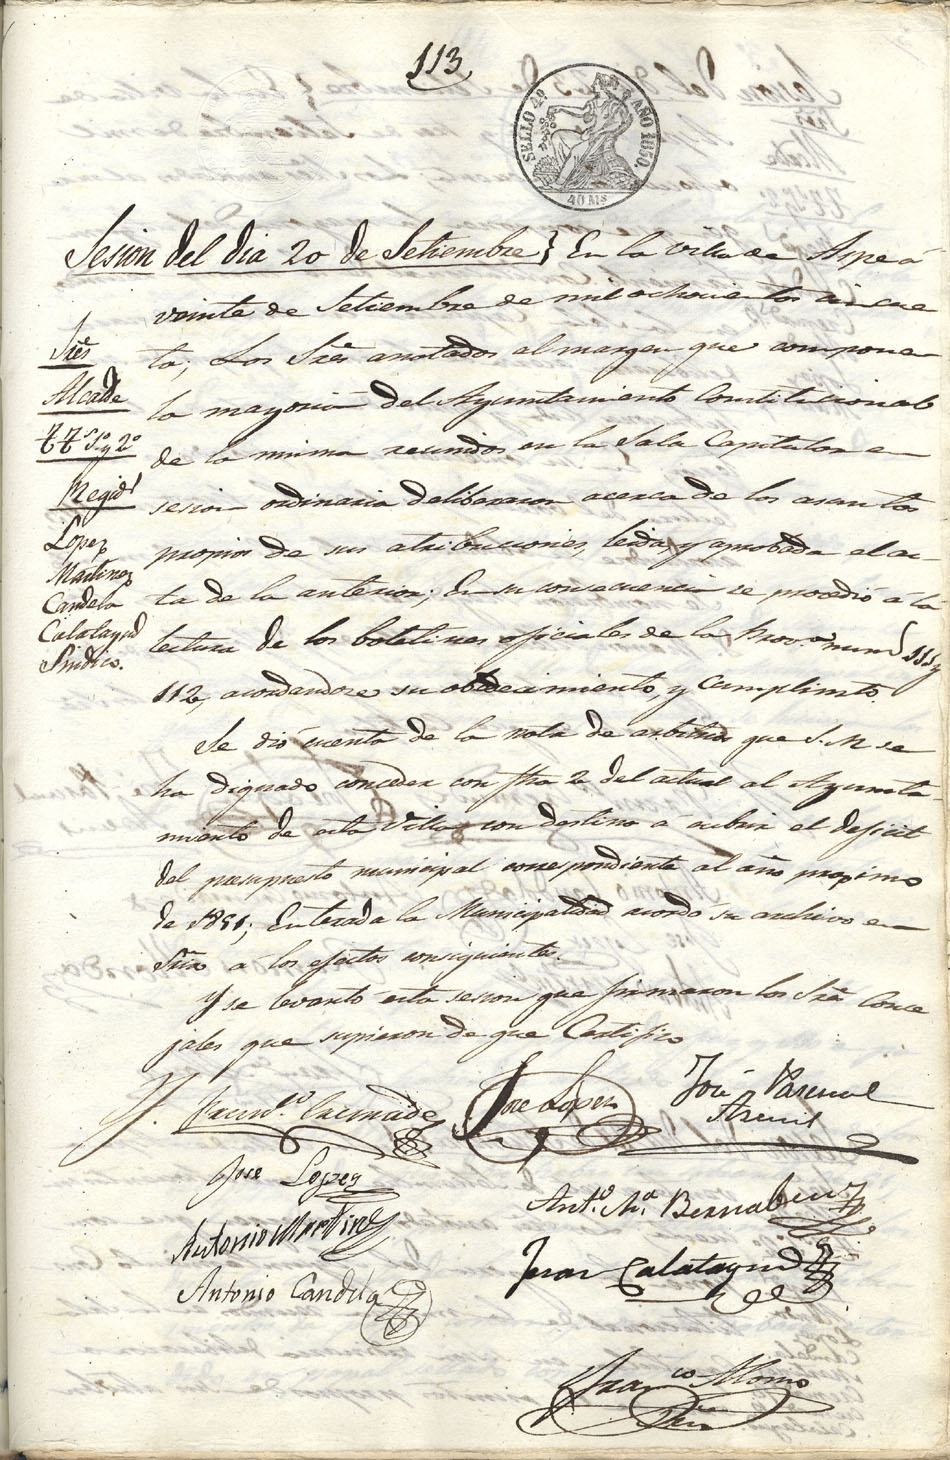 113
SELLO 4º AÑO 1850.
40 Ms
Sesion del dia 20 de Setiembre } En la villa de Aspe á
veinte de Setiembre de mil ochocientos cincuen
ta; Los Sres anotados al margen que componen
la mayoria del Ayuntamiento Constitucional
de la misma reunidos en la Sala Capitular en
sesion ordinaria deliberaron acerca de los asuntos
propios de sus atribuciones, leida, y aprobada el ac-
ta de la anterior; En su consecuencia se procedió á la
lectura de los boletines oficiales de la Prova num 111 y
112, acordandose su obedecimiento, y cumplimto.
Sres
Alcalde
tt.s 1º y 2º
Regids
Lopez
Martinez
Candela
Calatayud
Sindico.
Se dió cuenta de la nota de arbitrios que S. M. se
ha dignado conceder con fha 2 del actual al Ayunta-
miento de esta Villa con destino á cubrir el deficit
del presupuesto municipal correspondiente al año proximo
de 1851; Enterada la Municipalidad acordó su archivo en
Sria á los efectos consiguientes.
Y se levantó esta sesion que firmaron los Sres Conce
jales que supieron de que Certifico
Jose Lopez
José Pascual
Jose Lopez
Anto. Ma. Bernabeu
Antonio Martinez
Juan Calatayud
Antonio Candela
Franco Alonso
Srio